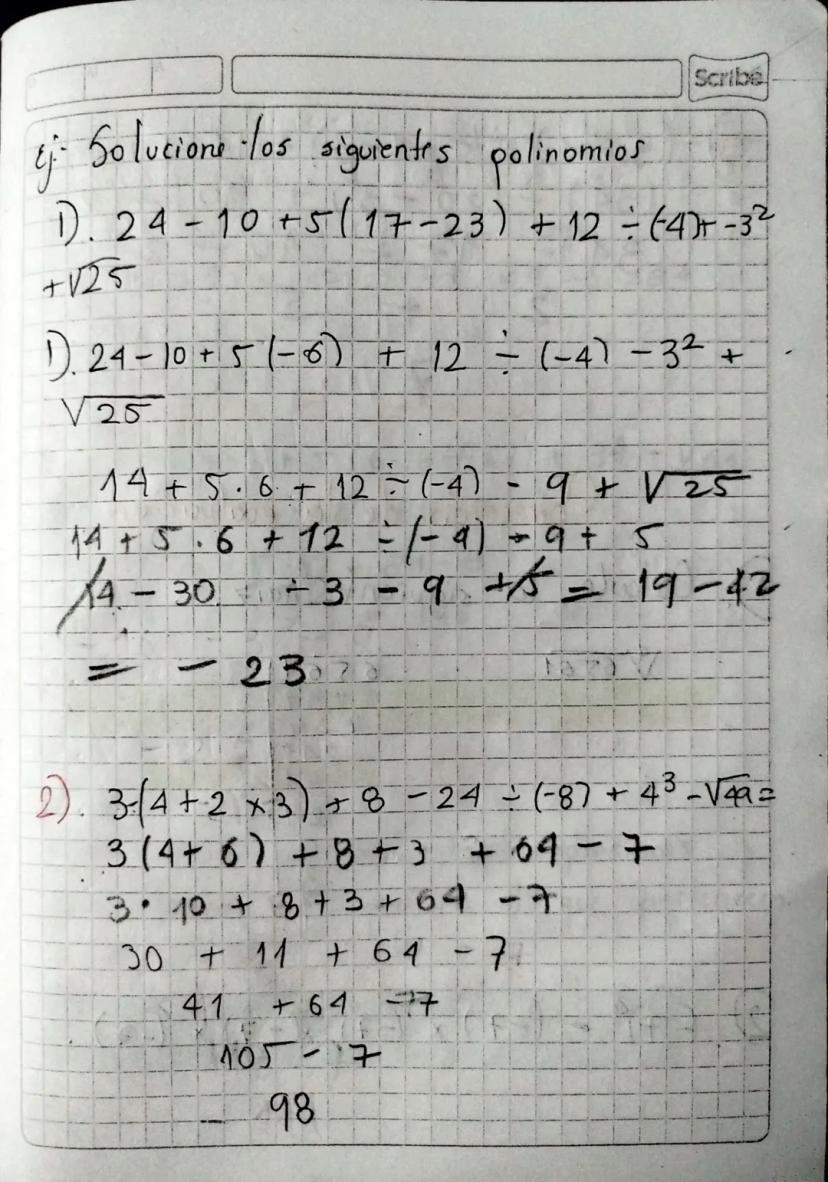 Scribe
Ej- Solucione los siguientes polinomios
1). 24 - 10 + 5(17-23) + 12 ÷ (-4) + -3²
+√25
1). 24 - 10 + 5 (-6) + 12 ÷ (-4) - 3² +
√25
14 + 5 · 6 + 12 ÷ (-4) - 9 + √25
14 + 5 · 6 + 12 ÷ (-4) - 9 + 5
14 - 30 - 3 - 9 + 5 = 19 - 42
= - 23
2). 3·(4 + 2 × 3) + 8 - 24 ÷ (-8) + 4³ - √49 =
3 (4 + 6) + 8 + 3 + 64 - 7
3 · 10 + 8 + 3 + 64 - 7
30 + 11 + 64 - 7
41 + 64 - 7
105 - 7
98